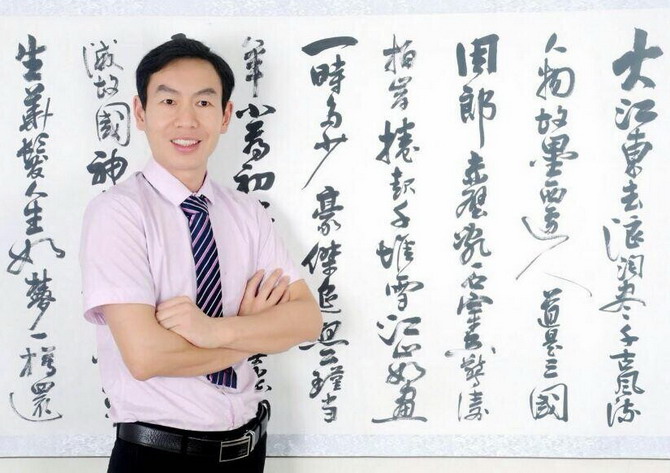 大江東去浪淘盡千古風流
人物故壘西邊人道是三國
周郎赤壁乱石穿空驚濤
拍岸捲起千堆雪江山如畫
一時多少豪傑遥想公瑾当
年小喬初
故國神
生華髮人生如夢一樽還